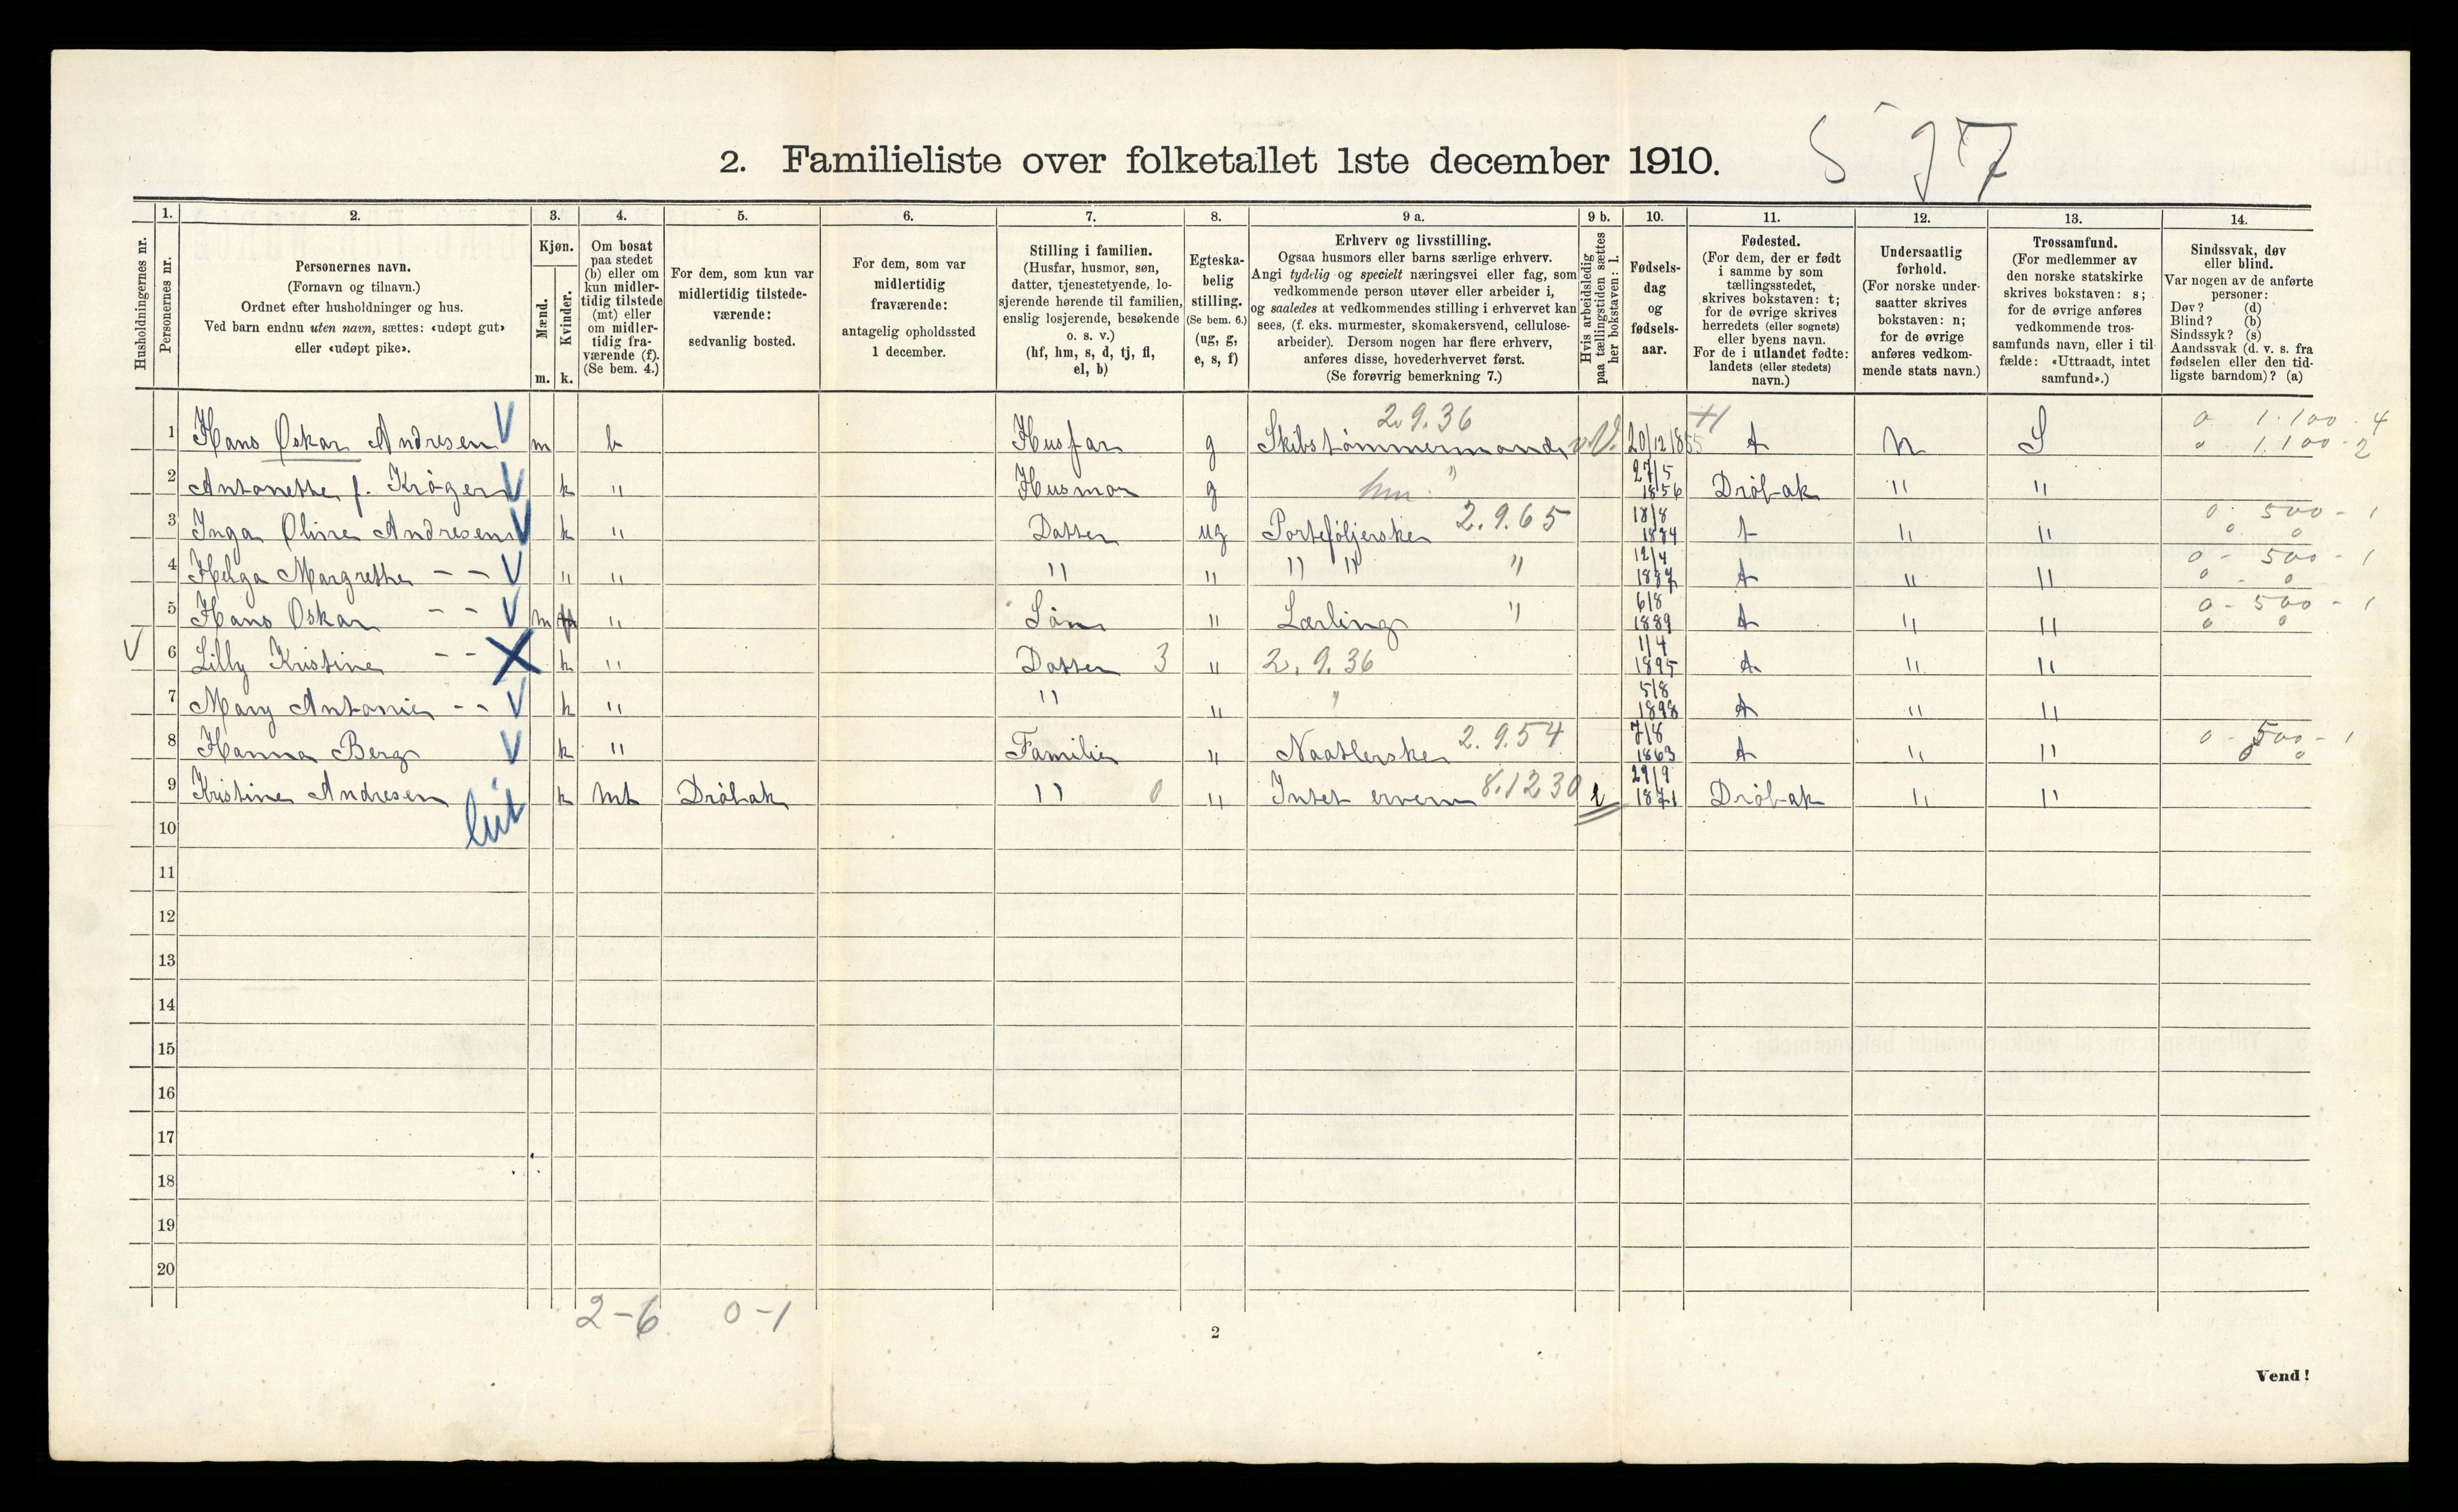 2. Familieliste over folketallet 1ste december 1910.
597
Husholdningernes nr.
1.
Personernes nr.
2.
Personernes navn.
(Fornavn og tilnavn.)
Ordnet efter husholdninger og hus.
Ved barn endnu uten navn, sættes: «udøpt gut»
eller «udøpt pike».
3.
Kjøn.
Mænd.
Kvinder.
m. k.
4.
Om bosat
paa stedet
(b) eller om
kun midler-
tidig tilstede
(mt) eller
om midler-
tidig fra-
værende (f).
(Se bem. 4.)
5.
For dem, som kun var
midlertidig tilstede-
værende:
sedvanlig bosted.
6.
For dem, som var
midlertidig
fraværende:
antagelig opholdssted
1 december.
7.
Stilling i familien.
(Husfar, husmor, søn,
datter, tjenestetyende, lo-
sjerende hørende til familien,
enslig losjerende, besøkende
o. s. v.)
(hf, hm, s, d, tj, fl,
el, b)
8.
Egteska-
belig
stilling.
(Se bem. 6.)
(ug, g,
e, s, f)
9 a.
Erhverv og livsstilling.
Ogsaa husmors eller barns særlige erhverv.
Angi tydelig og specielt næringsvei eller fag, som
vedkommende person utøver eller arbeider i,
og saaledes at vedkommendes stilling i erhvervet kan
sees, (f. eks. murmester, skomakersvend, cellulose-
arbeider). Dersom nogen har flere erhverv,
anføres disse, hovederhvervet først.
(Se forøvrig bemerkning 7.)
9 b.
Hvis arbeidsledig
paa tællingstiden sættes
her bokstaven: l.
10.
Fødsels-
dag
og
fødsels-
aar.
11.
Fødested.
(For dem, der er født
i samme by som
tællingsstedet,
skrives bokstaven: t;
for de øvrige skrives
herredets (eller sognets)
eller byens navn.
For de i utlandet fødte:
landets (eller stedets)
navn.)
12.
Undersaatlig
forhold.
(For norske under-
saatter skrives
bokstaven: n;
for de øvrige
anføres vedkom-
mende stats navn.)
13.
Trossamfund.
(For medlemmer av
den norske statskirke
skrives bokstaven: s;
for de øvrige anføres
vedkommende tros-
samfunds navn, eller i til-
fælde: «Uttraadt, intet
samfund».)
14.
Sindssvak, døv
eller blind.
Var nogen av de anførte
personer:
Døv? (d)
Blind? (b)
Sindssyk? (s)
Aandssvak (d. v. s. fra
fødselen eller den tid-
ligste barndom)? (a)
1 Hans Oskar Andresen V m b Husfar g Skibstømmermand 2.9.36 20/12 1855 t N S 0 1.100-4
0 1.100-2
2 Antonette f. Krøger V k " Husmor g hm. " 27/5 1856 Drøbak " "
3 Inga Oline Andresen V k " Datter ug Porteføljerske 2.9.65 18/8 1884 t " " 0 500-1
0 0
4 Helga Margrethe - - V " " " " " " " 12/4 1887 t " " 0-500-1
0-0
5 Hans Oskar - - V m " Søn " Lærling " 6/8 1889 t " " 0-500-1
0 0
V 6 Lilly Kristine - - X k " Datter 3 " 2.9.36 1/4 1895 t " "
7 Mary Antonie - - V k " " " " 5/8 1898 t " "
8 Hanna Berg V k " Familie " Naatlerske 2.9.54 7/8 1863 t " " 0-500-1
0 0
9 Kristine Andresen k mt Drøbak " 0 " Intet erverv 8.1230 l 29/9 1871 Drøbak " "
10
11
12
13
14
15
16
17
18
19
20
2-6 0-1
2
Vend!